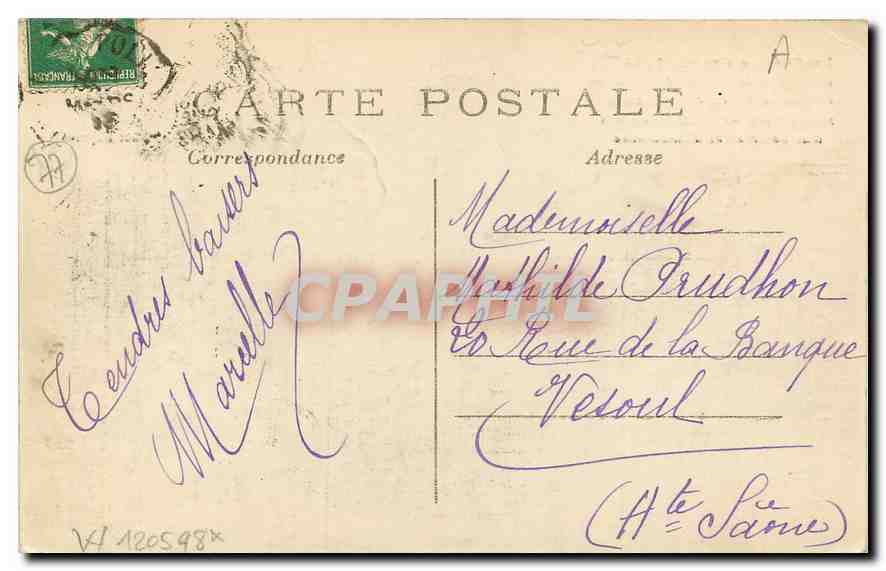 RÉPUBLIQUE FRANÇAISE
A
CARTE POSTALE
77
Correspondance
Adresse
Tendres baisers
Marcelle
Mademoiselle
Mathilde Prudhon
20 Rue de la Banque
Vesoul
(Hte Saône)
CPAPHIL
120598x